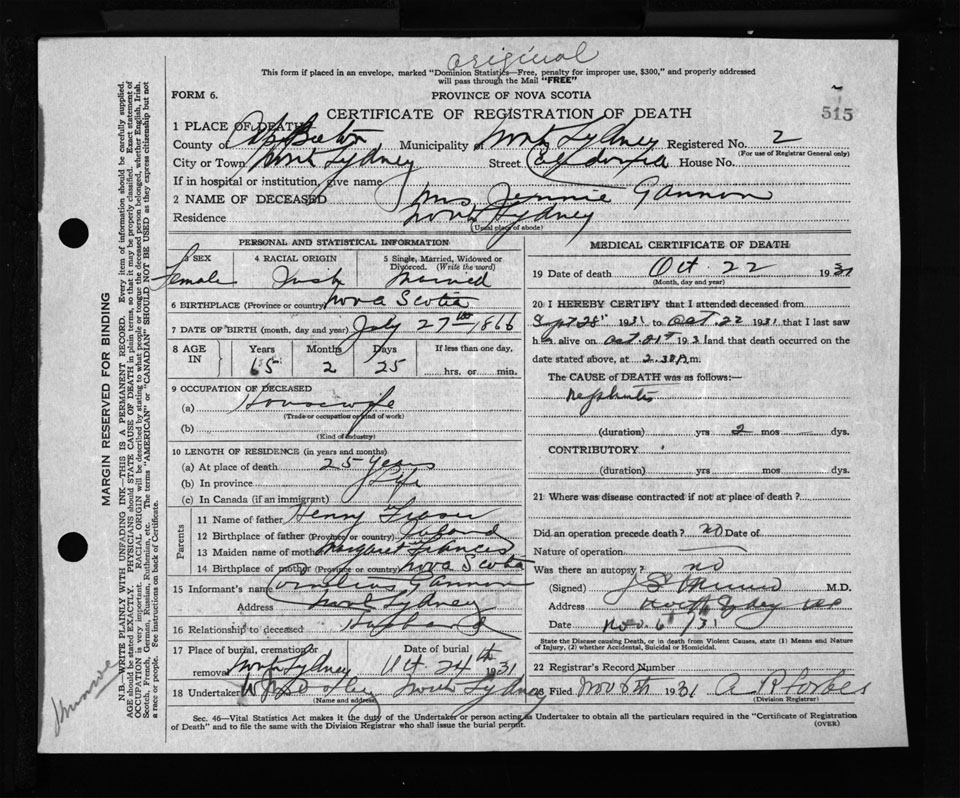 original
This form if placed in an envelope, marked "Dominion Statistics—Free, penalty for improper use, $300," and properly addressed
will pass through the Mail "FREE"
FORM 6. PROVINCE OF NOVA SCOTIA
515
CERTIFICATE OF REGISTRATION OF DEATH
1 PLACE OF DEATH
County of Cape Breton Municipality of North Sydney Registered No. 2
(For use of Registrar General only)
City or Town North Sydney Street House No.
If in hospital or institution, give name
2 NAME OF DECEASED Mrs Jennie Gannon
Residence North Sydney
(Usual place of abode)
PERSONAL AND STATISTICAL INFORMATION
3 SEX Female
4 RACIAL ORIGIN Irish
5 Single, Married, Widowed or Divorced. (Write the word) Married
6 BIRTHPLACE (Province or country) Nova Scotia
7 DATE OF BIRTH (month, day and year) July 27th 1866
8 AGE IN Years 65 Months 2 Days 25 If less than one day, hrs. or min.
9 OCCUPATION OF DECEASED
(a) Housewife
(Trade or occupation or kind of work)
(b)
(Kind of industry)
10 LENGTH OF RESIDENCE (in years and months)
(a) At place of death 25 Years
(b) In province Life
(c) In Canada (if an immigrant)
Parents
11 Name of father Henry Fraser
12 Birthplace of father (Province or country)
13 Maiden name of mother Margaret Francis
14 Birthplace of mother (Province or country) Nova Scotia
15 Informant's name Cornelius Gannon
Address North Sydney
16 Relationship to deceased Husband
17 Place of burial, cremation or removal North Sydney Date of burial Oct. 24th 1931
18 Undertaker North Sydney
(Name and address)
MEDICAL CERTIFICATE OF DEATH
19 Date of death Oct. 22 1931
(Month, day and year)
20 I HEREBY CERTIFY that I attended deceased from
Sept 28th 1931 to Oct. 22 1931 that I last saw
her alive on Oct. 21st 1931 and that death occurred on the
date stated above, at 2.30 A.m.
The CAUSE of DEATH was as follows:—
Nephritis
(duration) yrs 2 mos — dys.
CONTRIBUTORY
(duration) yrs mos dys.
21 Where was disease contracted if not at place of death?
Did an operation precede death? no Date of
Nature of operation
Was there an autopsy? no
(Signed) J S Munro M.D.
Address North Sydney NS
Date Nov. 6/31
State the Disease causing Death, or in death from Violent Causes, state (1) Means and Nature
of Injury, (2) whether Accidental, Suicidal or Homicidal.
22 Registrar's Record Number
23 Filed Nov 6th 1931 A R Forbes
(Division Registrar)
Sec. 46—Vital Statistics Act makes it the duty of the Undertaker or person acting as Undertaker to obtain all the particulars required in the "Certificate of Registration
of Death" and to file the same with the Division Registrar who shall issue the burial permit.
(OVER)
MARGIN RESERVED FOR BINDING
N.B.—WRITE PLAINLY WITH UNFADING INK—THIS IS A PERMANENT RECORD. Every item of information should be carefully supplied.
AGE should be stated EXACTLY. PHYSICIANS should STATE CAUSE OF DEATH in plain terms, so that it may be properly classified. Exact statement of
OCCUPATION is very important. RACIAL ORIGIN will be described by stating to what people or tongue the deceased person belonged, whether English, Irish,
Scotch, French, German, Russian, Ruthenian, etc. The terms "AMERICAN" or "CANADIAN" SHOULD NOT BE USED as they express citizenship but not
a race or people. See instructions on back of Certificate.
J Munroe